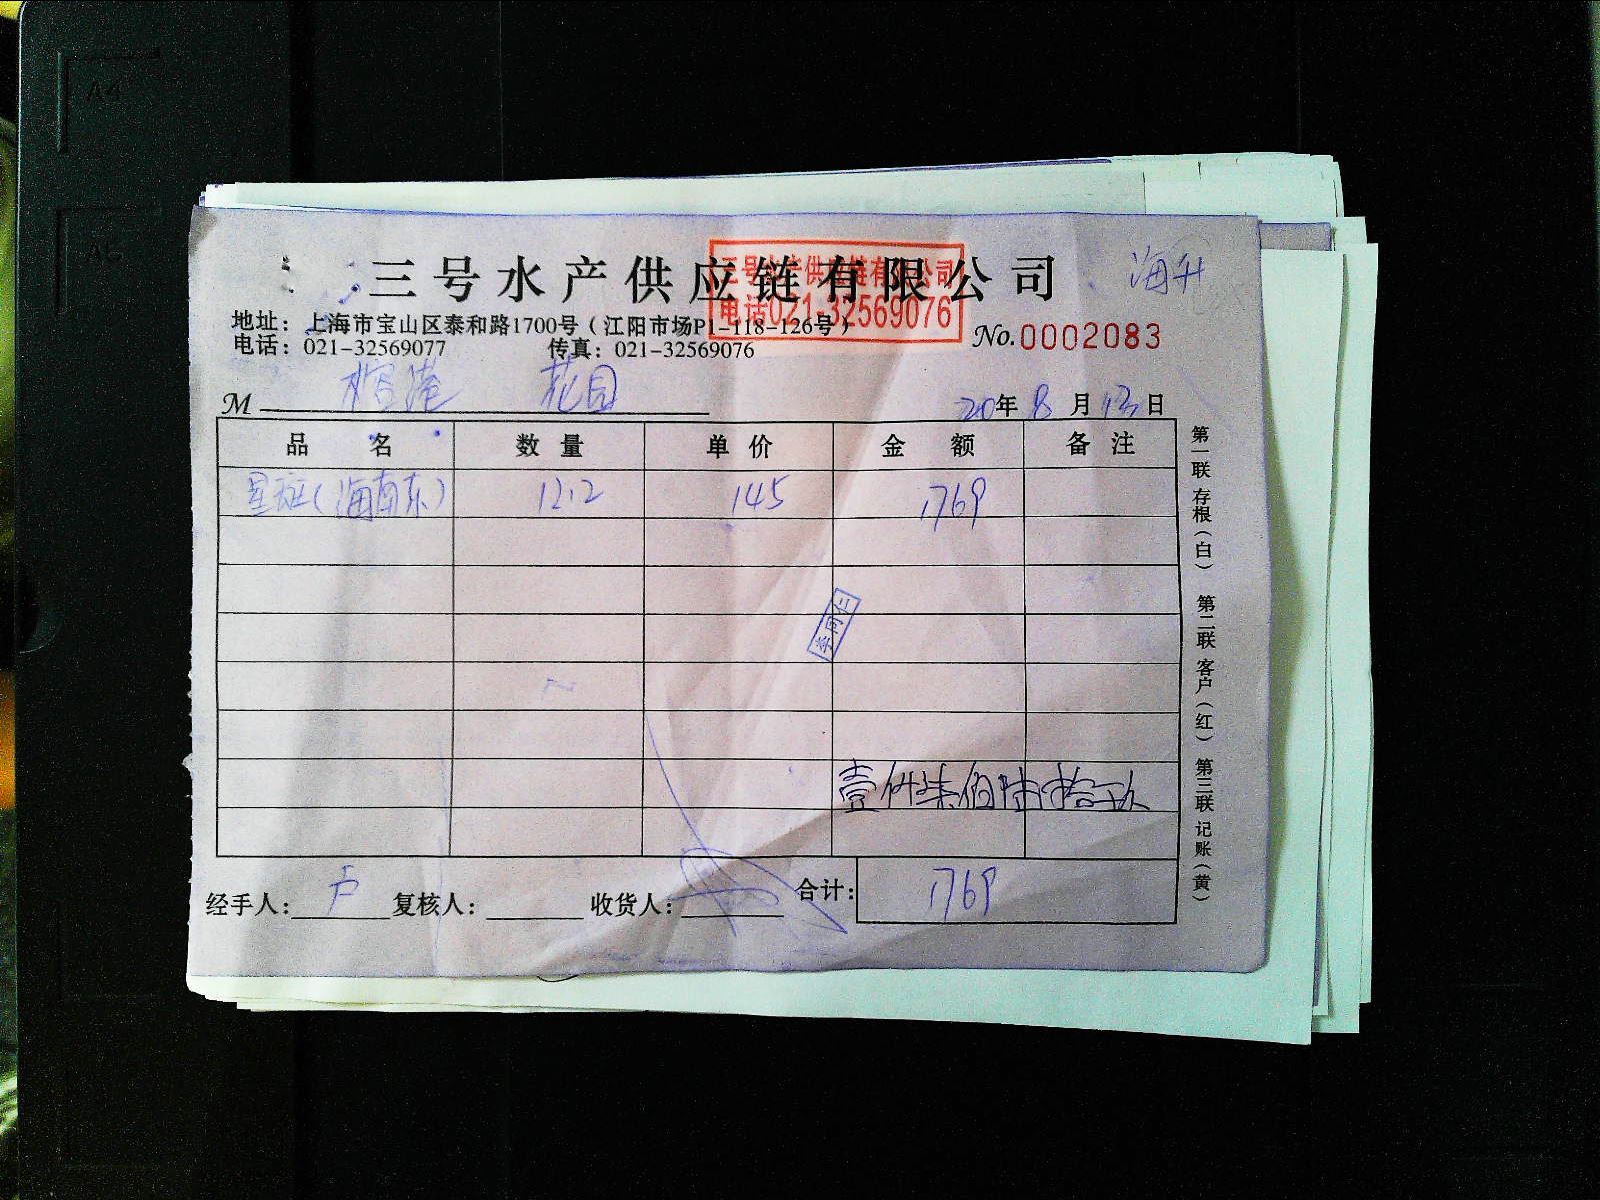 三号水产供应链有限公司
海升
三号水产供应链有限公司
电话021-32569076
地址：上海市宝山区泰和路1700号（江阳市场P1-118-126号）
电话：021-32569077 传真：021-32569076
No.0002083
M 花园
20年8月13日
品名 数量 单价 金额 备注
星斑(海南东) 12.2 145 1769
李同仁
壹仟柒佰陆拾玖
经手人： 卢 复核人： 收货人： 合计： 1769
第一联 存根（白） 第二联 客户（红） 第三联 记账（黄）
A4
A5